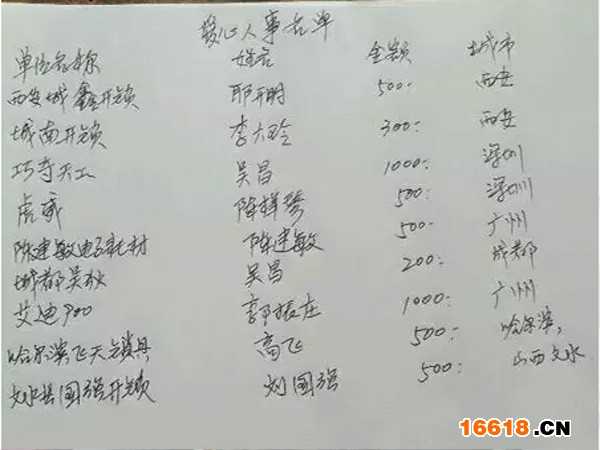 爱心人事名单
单位名称 姓名 金额 城市
西安城鑫开锁 耶开明 500: 西安
城南开锁 李大玲 300: 西安
巧夺天工 吴昌 1000: 深圳
虎威 陈祥琴 500: 深圳
陈建敏电子耗材 陈建敏 500: 广州
城都吴狄 吴昌 200: 成都
艾迪900 郭振庄 1000: 广州
哈尔滨飞天锁具 高飞 500: 哈尔滨,
文水县国强开锁 刘国强 500: 山西文水
16618.CN